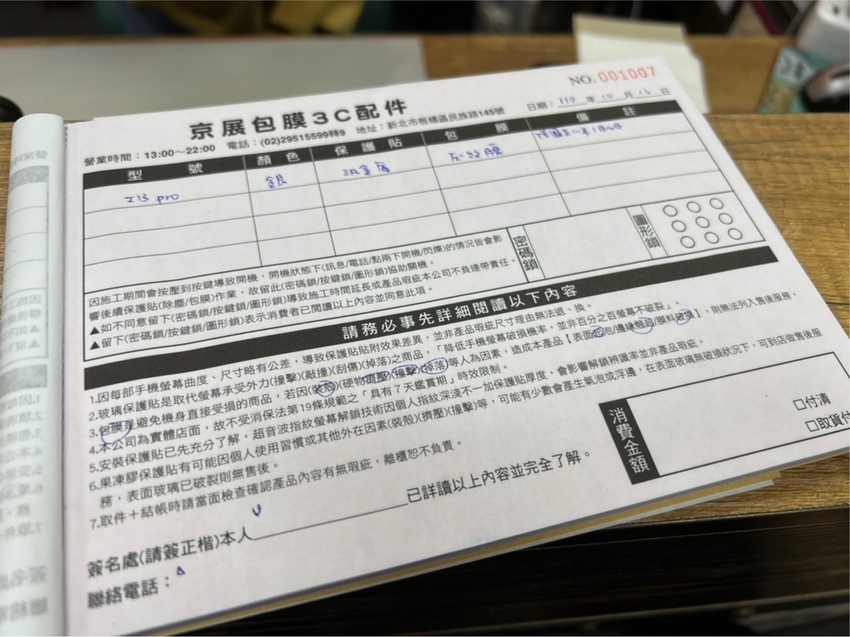 NO. 001007
京展包膜3C配件
日期：110 年 10 月 16 日
營業時間：13:00～22:00 電話：(02)29515599 地址：新北市板橋區民族路145號
型號 顏色 保護貼 包膜 備註
I13 pro 銀
因施工期間會按壓到按鍵導致開機，開機狀態下(訊息/電話/點兩下開機/閃爍)的情況皆會影
響後續保護貼(除塵/包膜)作業，故留此(密碼鎖/按鍵鎖/圖形鎖)協助關機。
▲如不同意留下(密碼鎖/按鍵鎖/圖形鎖)導致施工時間延長或產品瑕疵本公司不負連帶責任。
▲留下(密碼鎖/按鍵鎖/圖形鎖)表示消費者已閱讀以上內容並同意此項。
密碼鎖
圖形鎖
請務必事先詳細閱讀以下內容
1.因每部手機螢幕曲度、尺寸略有公差，導致保護貼貼附效果差異，並非產品瑕疵尺寸理由無法退、換。
2.玻璃保護貼是取代螢幕承受外力(撞擊)(敲撞)(刮傷)(掉落)之商品，「降低手機螢幕破損機率，並非百分之百螢幕不破裂」。
3.包膜是避免機身直接受損的商品，若因(裝殼)(硬物擠壓)(撞擊)(掉落)等人為因素，造成本產品【表面/邊緣/膜料】，則無法列入售後服務。
4.本公司為實體店面，故不受消保法第19條規範之「具有7天鑑賞期」時效限制。
5.安裝保護貼已先充分了解，超音波指紋螢幕解鎖技術因個人指紋深淺不一加保護貼厚度，會影響解鎖辨識率並非產品瑕疵。
6.果凍膠保護貼有可能因個人使用習慣或其他外在因素(裝殼)(擠壓)(撞擊)等，可能有少數會產生氣泡或浮邊，在表面玻璃無破損狀況下，可到店做售後服
務，表面玻璃已破裂則無售後。
7.取件＋結帳時請當面檢查確認產品內容有無瑕疵，離櫃恕不負責。
消費金額
□付清
□取貨付
簽名處(請簽正楷)本人 已詳讀以上內容並完全了解。
聯絡電話：